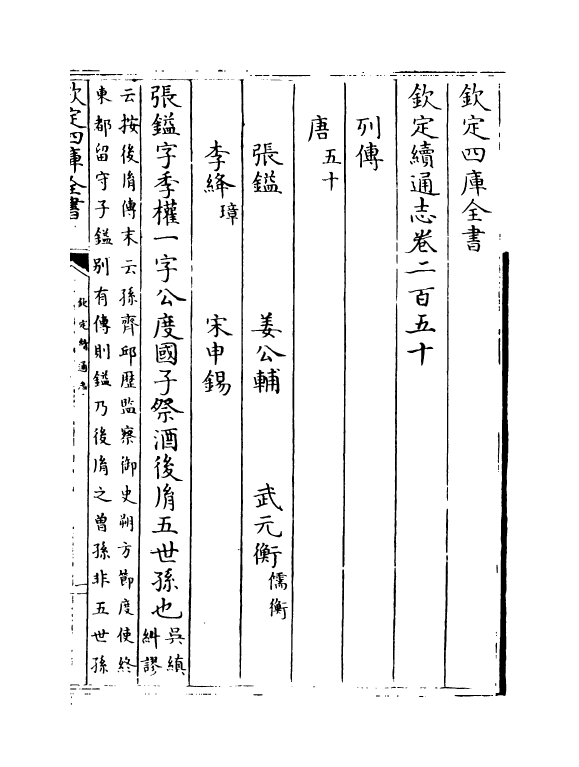 欽定四庫全書
欽定續通志卷二百五十
列傳
唐五十
張鎰 姜公輔 武元衡儒衡
李絳璋 宋申錫
張鎰字季權一字公度國子祭酒後𦙍五世孫也吳縝
糾謬
云按後𦙍傳末云孫齊邱歴監察御史朔方節度使終
東都留守子鎰别有傳則鎰乃後𦙍之曽孫非五世孫
欽定四庫全書
欽定續通志